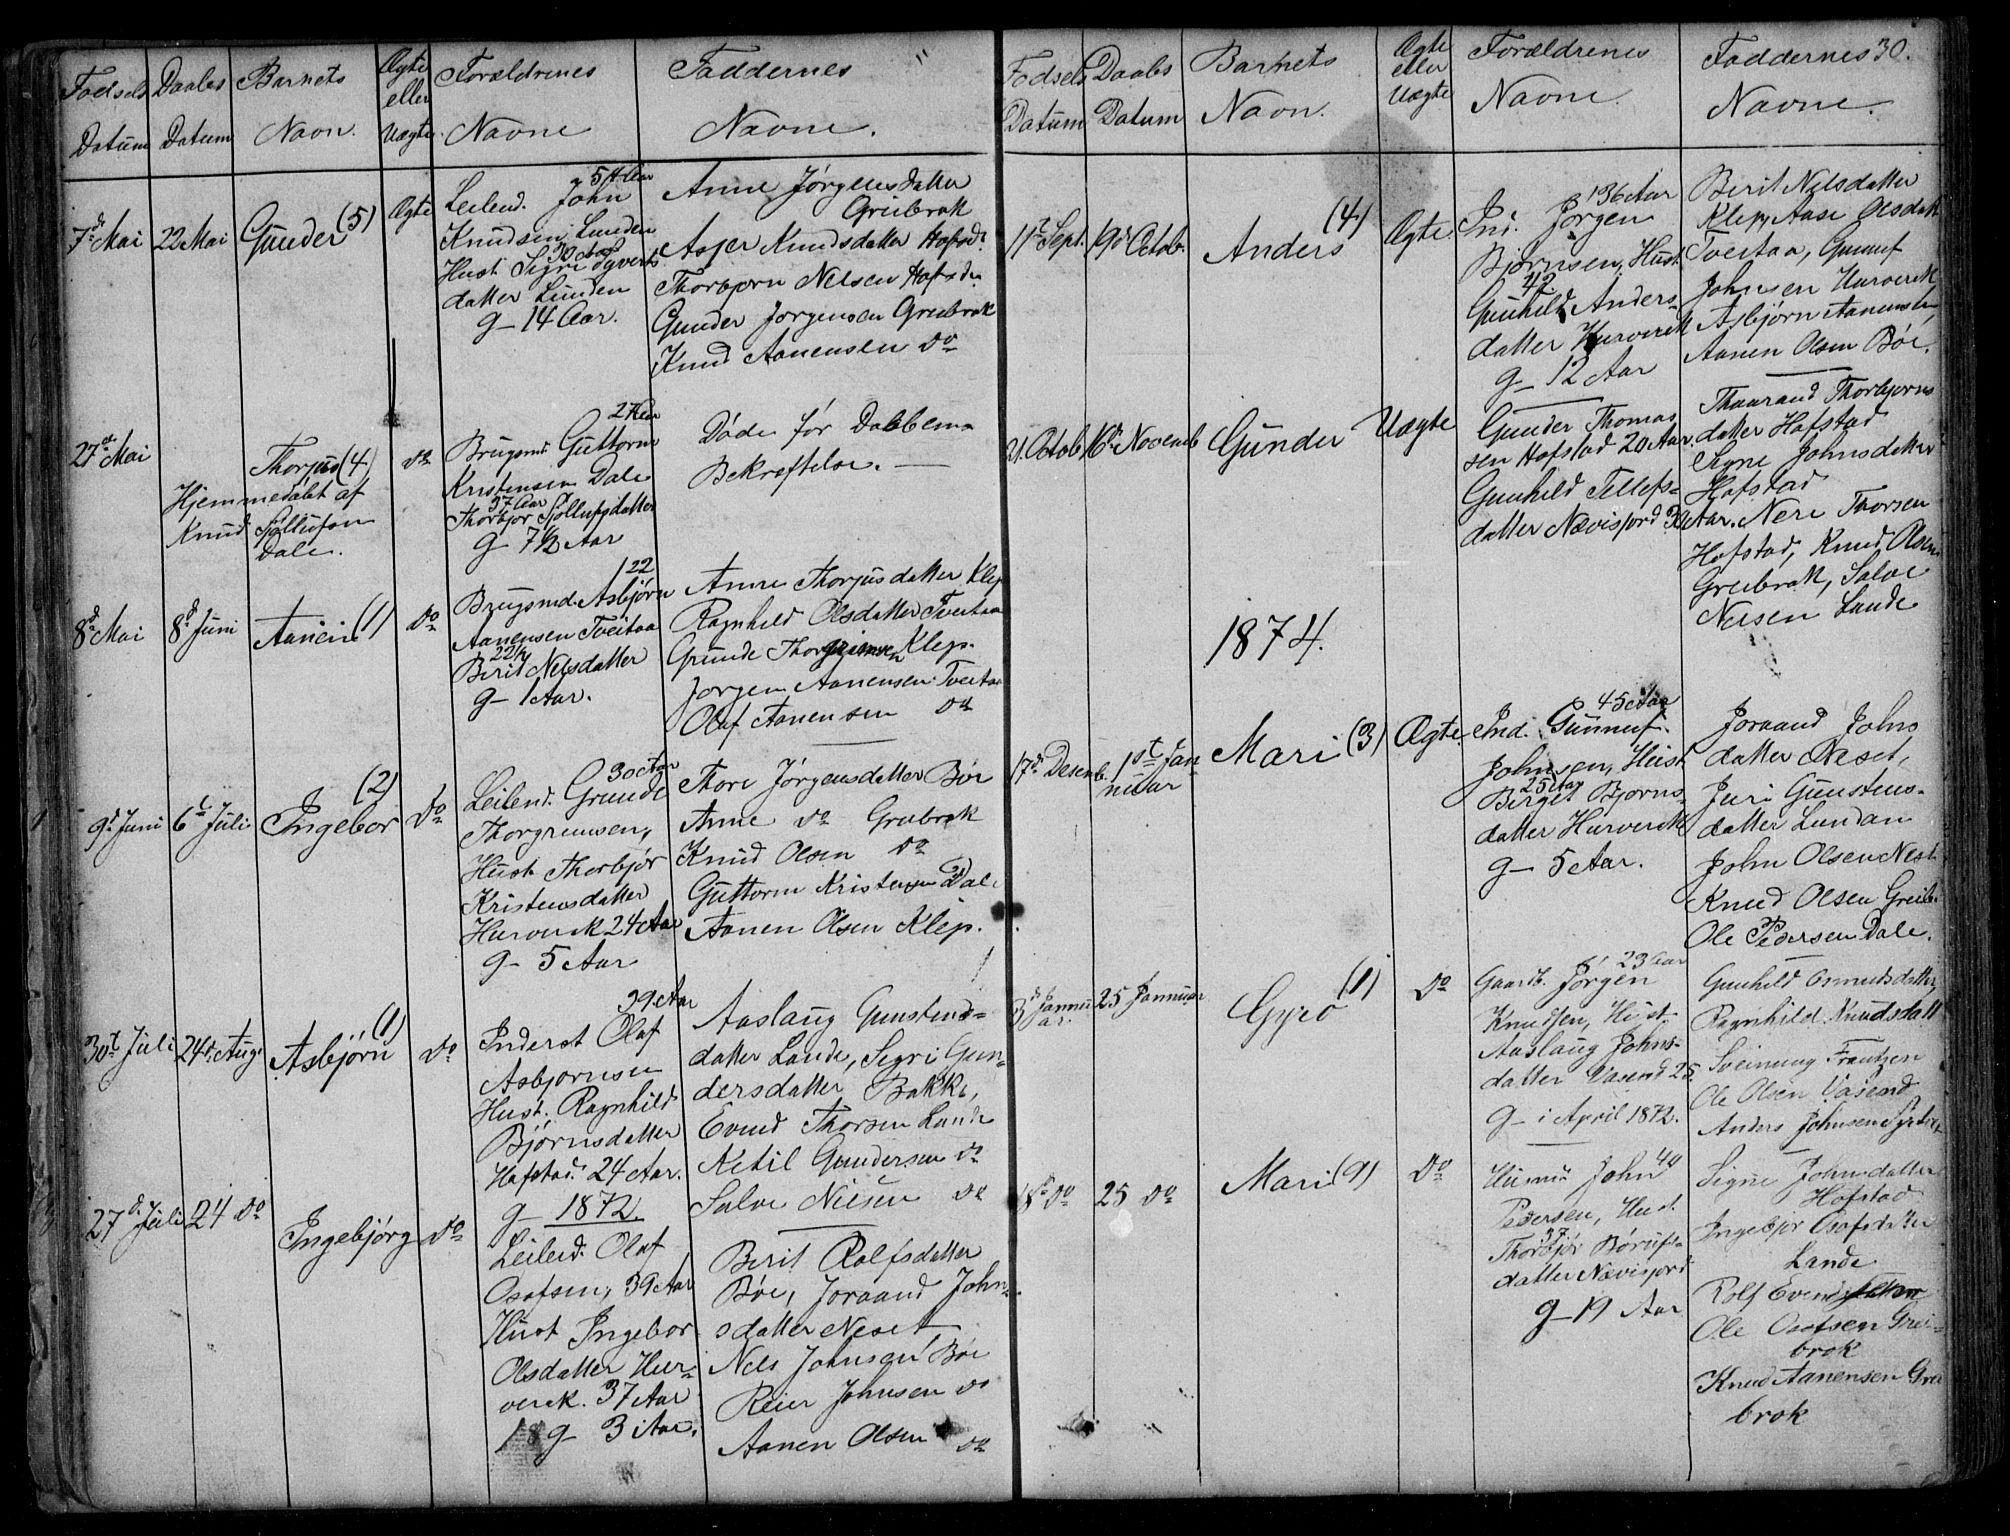 Fødsels Daabs Barnets Ægte Forældrenes Faddernes
eller
Datum Datum Navn. Uægte. Navne Navne.
54 Aar
7de Mai 22 Mai Gunder (5) Ægte Leilend. John
Knudsen Lunden
30 Aar
Hust Sigri Syverts
datter Lunden
g– 14 Aar.
Anne Jørgensdatter
Greibrok
Asjer Knudsdatter Hofsd.
Thorbjørn Nelsen Hofsdn
Gunder Jørgensen Greibrok
Knud Aanensen do
27de Mai Thorjus (4) do
Hjemmedøbt af
Knud Sjøllufsen
Dale.
27 Aar
Brugsmd. Guttorm
Kristensen Dale
37 Aar
Thorbjør Sjøllufsdatter
g– 7½ Aar
Døde før Daabbens
Bekræftelse. —
8de Mai 8de Juni Aanein (1) do
22
Brugsmd. Asbjørn
Aanensen Tveitaa
22½
Berit Nelsdatter
g– 1 Aar.
Anne Thorjusdatter Klep
Ragnhild Olsdatter Tveitaa
Grunde Thorgrimsen Klep.
Jørgen Aanensen Tveitaa
Olaf Aanensen do
9de Juni 6te Juli Ingebor (2) do
30 Aar
Leilend. Grunde
Thorgrimsen,
Hust Thorbjør
Kristensdatter
Hurverk 24 Aar
g– 5 Aar
Thore Jørgensdatter Bøe
Anne do Greibrok
Knud Olsen do
Guttorm Kristensen Dale
Aanen Olsen Klep.
30te Juli 24de Aug. Asbjørn (1) do
39 Aar
Inderst Olaf
Asbjørnsen
Hust. Ragnhild
Bjørnsdatter
Hofstad 24 Aar.
g– 1872.
Aaslaug Gunstens=
datter Lande, Segri Gun=
dersdatter Bakke,
Evend Thorsen Lande
Ketil Gundersen do
Salve Nilsen do
27de Juli 24 do Ingebjørg do
Leilend. Olaf
Osofsen, 39 Aar
Hust Ingebor
Olsdatter Hur=
verk. 37 Aar
g– 3 Aar.
Berit Rolfsdatter
Bøe, Joraand John=
sdatter Neset
Nels Johnsen Bøe
Reier Johnsen do
Aanen Olsen do
Fødsels Daabs Barnets Ægte Forældrenes Faddernes 30.
eller
Datum Datum Navn. Uægte Navne. Navne.
11te Sept. 19de Octob. Anders (4) Ægte.
36 Aar
Ind. Jørgen
Bjørnsen, Hust
42
Gunhild Anders=
datter Hurverk
g– 12 Aar
Berit Nelsdatter
Klep, Aase Olsdatt
Tveitaa, Gunuf
Johnsen Hurverk
Asbjørn Aanensen
Aanen Olsen Bøe.
21. Octob. 16de Novemb Gunder Uægte
Gunder Thomas
sen Hofstad 20 Aar.
Gunhild Tellefs=
datter Nævisjord 30 Aar.
Thaarand Thorbjørns
datter Hofstad
Signe Johnsdatter
Hofstad
Nere Thorsen
Hofstad, Knud Olsen
Greibrok, Salve
Neisen Lande
1874.
17de Desemb. 1ste Jan
nuar
Mari (3) Ægte.
45 Aar
Ind. Gunnuf
Johnsen, Hust
25 Aar
Birget Bjørns=
datter Hurverk
g– 5 Aar.
Joraand Johns
datter Neset,
Juri Gunstens=
datter Lundan
John Olsen Nest
Knud Olsen Greib.
Ole Pedersen Dale.
3de Jannu
ar.
25 Jannuar Gyro (1) do
23 Aar
Gaardb. Jørgen
Knutsen, Hust
Aaslaug Johns=
datter Vasend 25.
g– i April 1872.
Gunhild Osmundsdatter
Ragnhild Knudsdatt
Sveinung Frantzen
Ole Olsen Vasend
Anders Johnsen
18de do 25 do Mari (9) do
44
Husmd John
Pedersen, Hust.
37
Thorbjør Børufs=
datter Nævisjord
g– 19 Aar
Signe Johnsdatter
Hofstad
Ingebjør Osofsdatter
Lande
Rolf Evend
Ole Osofsen Grei=
brok
Knud Aanensen Grei
brok